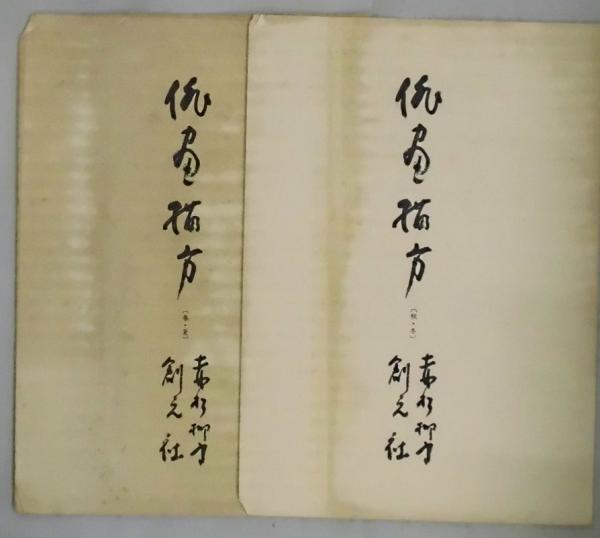 俳畫描方
(春・夏)
赤松柳史
創元社
俳畫描方
(秋・冬)
赤松柳史
創元社